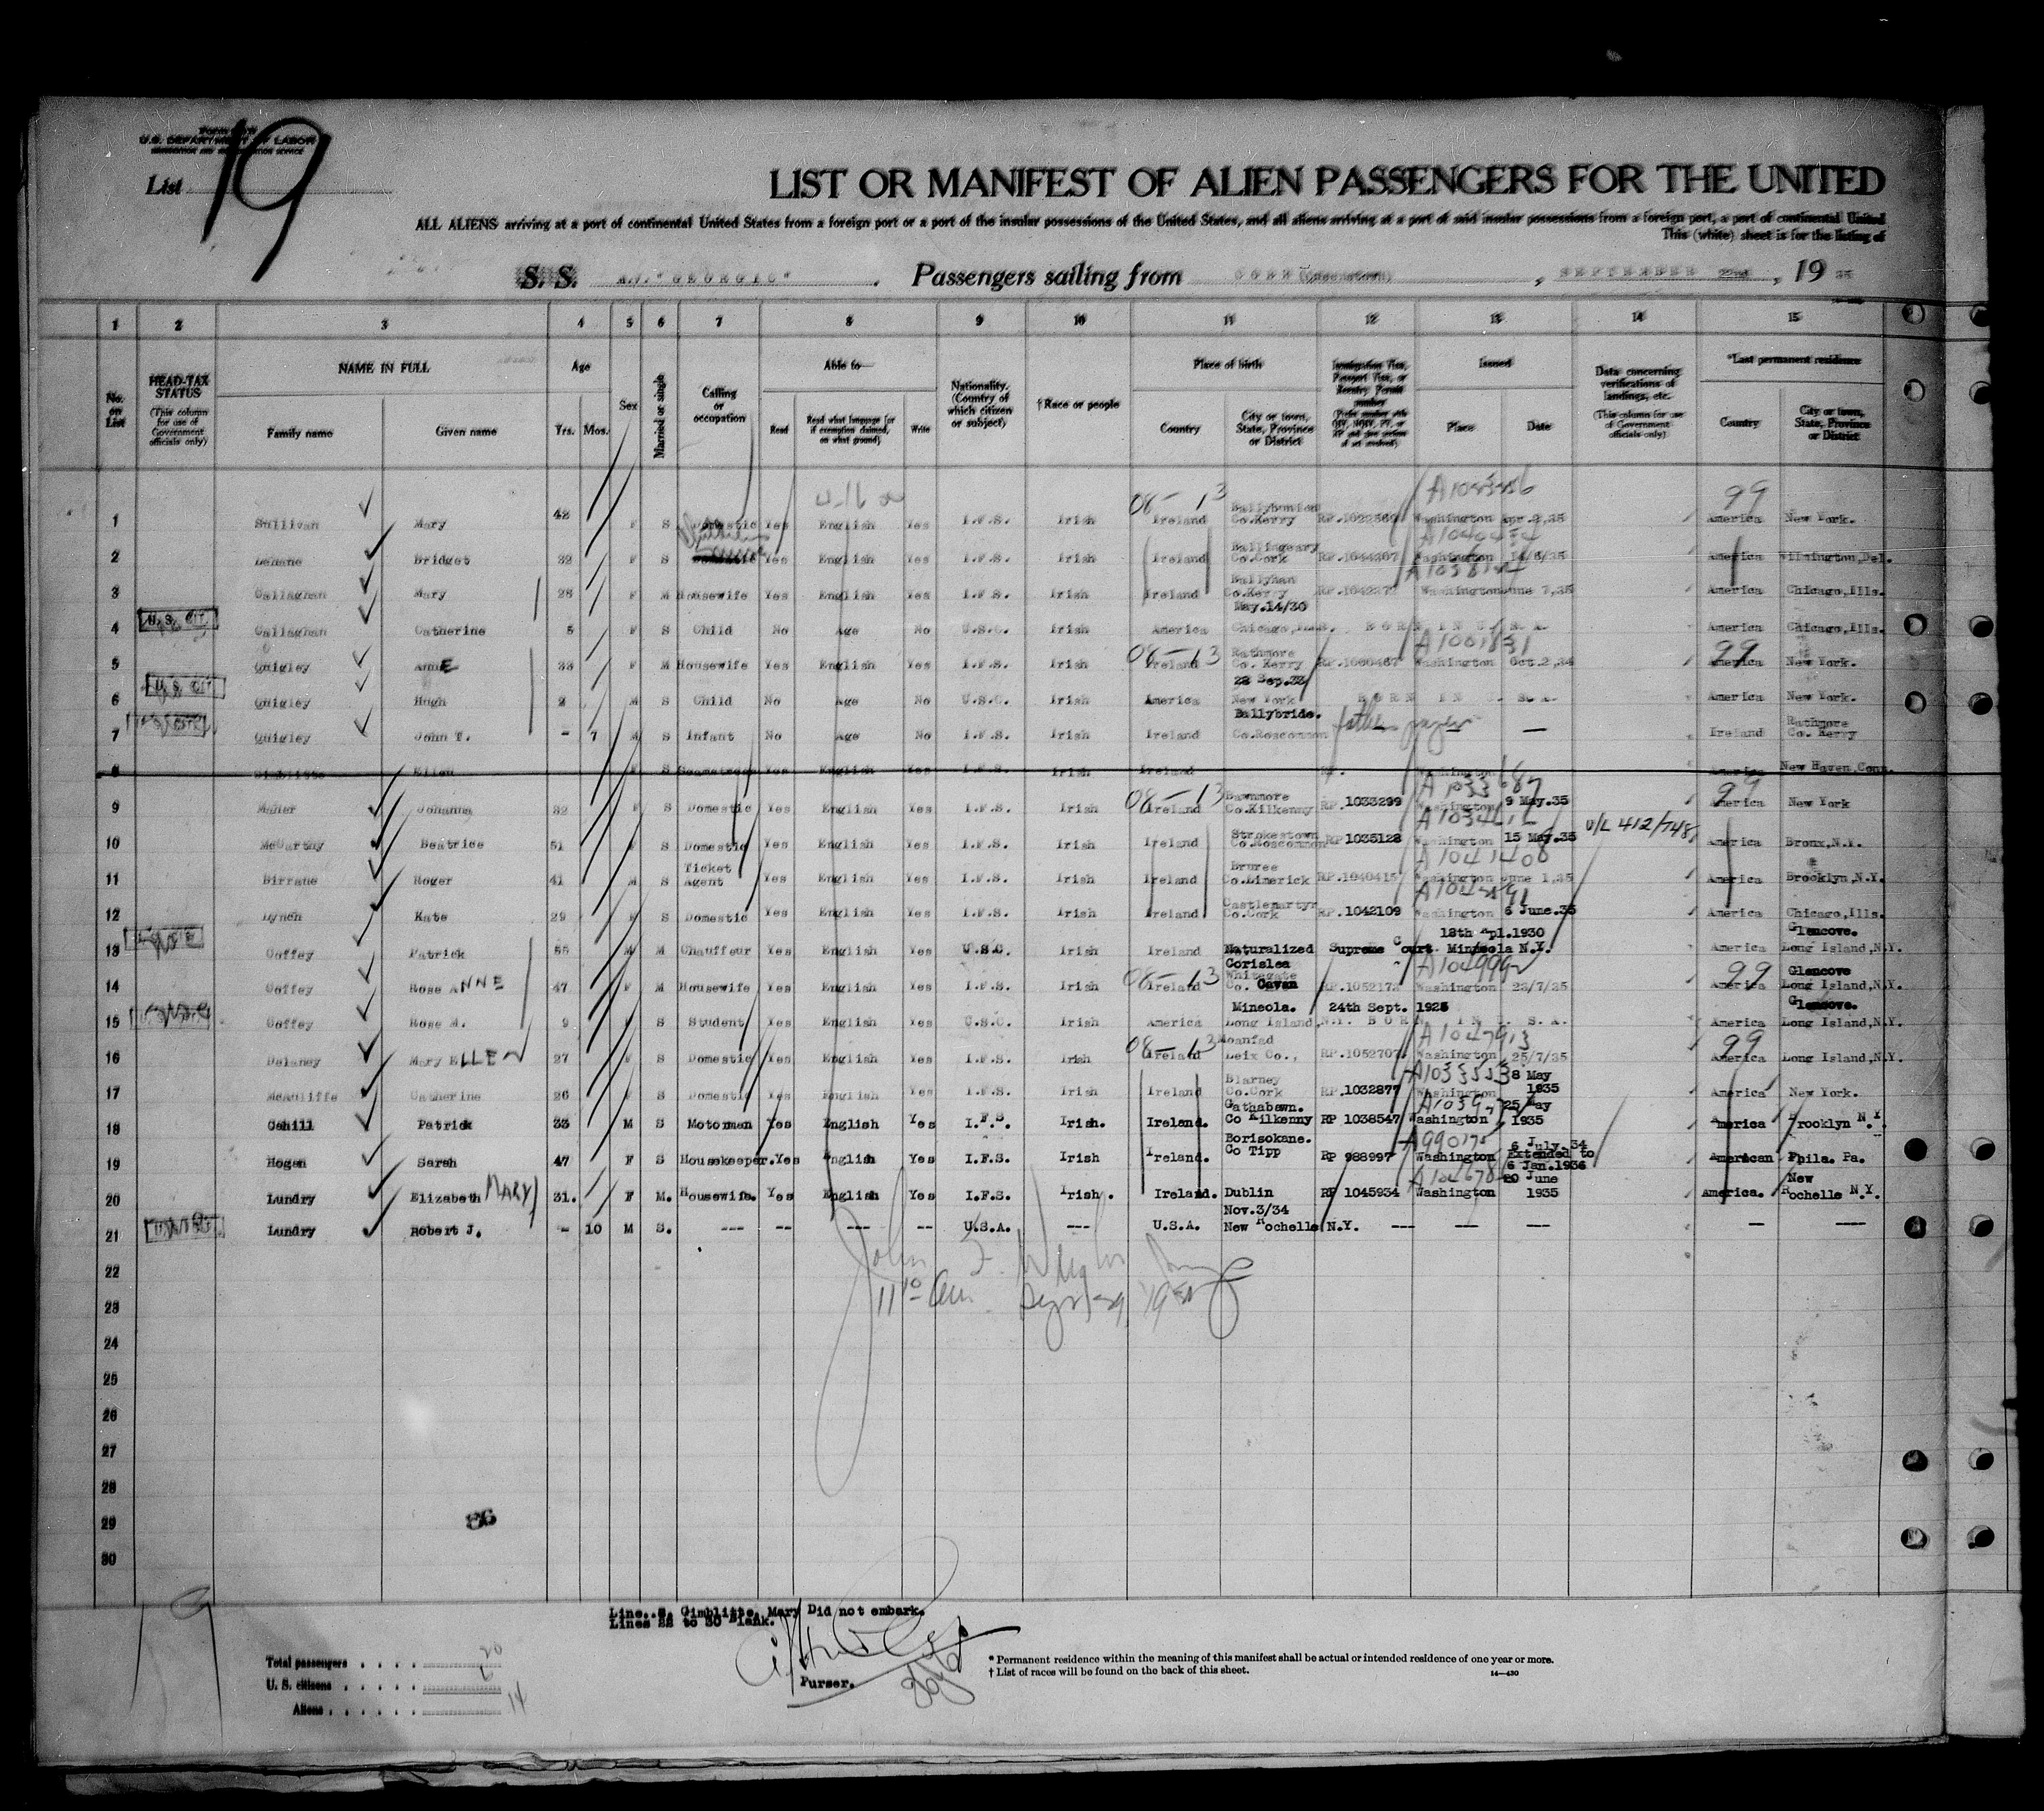 U.S. DEPARTMENT OF LABOR
IMMIGRATION AND NATURALIZATION SERVICE
List 19
LIST OR MANIFEST OF ALIEN PASSENGERS FOR THE UNITED
ALL ALIENS arriving at a port of continental United States from a foreign port or a port of the insular possessions of the United States, and all aliens arriving at a port of said insular possessions from a foreign port, a port of continental United
This (white) sheet is for the listing of
S. S. M.V. "GEORGIC" . Passengers sailing from CORK (Queenstown) , SEPTEMBER 22nd , 19 35
1 2 3 4 5 6 7 8 9 10 11 12 13 14 15
No. on List
HEAD-TAX STATUS (This column for use of Government officials only)
NAME IN FULL Family name Given name
Age Yrs. Mos.
Sex
Married or single
Calling or occupation
Able to— Read Read what language (or if exemption claimed, on what ground) Write
Nationality. (Country of which citizen or subject)
†Race or people
Place of birth Country City or town, State, Province or District
Immigration Visa, Passport Visa, or Reentry Permit number
Issued Place Date
Data concerning verifications of landings, etc. (This column for use of Government officials only)
*Last permanent residence Country City or town, State, Province or District
08-13 99
1 Sullivan Mary 42 F S Domestic Yes English Yes I.F.S. Irish Ireland Ballybunion Co.Kerry Washington Apr.2,35 America New York.
2 Lehane Bridget 32 F S Yes English Yes I.F.S. Irish Ireland Ballingeary Co.Cork RP.1044267 Washington 14/6/35 America Wilmington,Del.
3 Callaghan Mary 28 F M Housewife Yes English Yes I.F.S. Irish Ireland Co.Kerry Washington June 7,35 America Chicago,Ills.
4 U.S. CIT. Callaghan Catherine 5 F S Child No Age No U.S.C. Irish America May.14/30 Chicago,Ills. BORN IN U. S. A. America Chicago,Ills.
08-13 A1001831 99
5 Quigley AnnE 33 F M Housewife Yes English Yes I.F.S. Irish Ireland Rathmore Co. Kerry RP.1000467 Washington Oct.2,34 America New York.
6 U.S. CIT. Quigley Hugh 2 M S Child No Age No U.S.C. Irish America 28 Sep.32 New York BORN IN U. S. A. America New York.
7 Quigley John T. - 7 M S Infant No Age No I.F.S. Irish Ireland Ballybride. Co.Roscommon — Ireland Rathmore Co. Kerry
8 Ellen F S Seamstress Yes English Yes I.F.S. Irish Ireland RP. Washington America New Haven,Conn.
08-13 A1033687 99
9 Maher Johanna 32 F S Domestic Yes English Yes I.F.S. Irish Ireland Bawnmore Co.Kilkenny RP.1033299 Washington 9 May.35 America New York
10 McCarthy Beatrice 51 F S Domestic Yes English Yes I.F.S. Irish Ireland Strokestown Co.Roscommon RP1035128 Washington 15 May.35 V/L 412/748 America Bronx,N.Y.
A1041408
11 Birrane Roger 41 M S Ticket Agent Yes English Yes I.F.S. Irish Ireland Bruree Co.Limerick RP.1040415 Washington June 1,35 America Brooklyn,N.Y.
12 Lynch Kate 29 F S Domestic Yes English Yes I.F.S. Irish Ireland Castlemartyr Co.Cork RP.1042109 Washington 6 June.35 America Chicago,Ills.
13 Coffey Patrick 55 M M Chauffeur Yes English Yes U.S.C. Irish Ireland Naturalized Supreme Court Mineola N.Y. 18th Apl.1930 America Glencove. Long Island,N.Y.
08-13 99
14 Coffey Rose ANNE 47 F M Housewife Yes English Yes I.F.S. Irish Ireland Corislea Whitegate Co. Cavan RP.1052173 Washington 23/7/35 America Glencove Long Island,N.Y.
15 Coffey Rose M. 9 F S Student Yes English Yes U.S.C. Irish America Mineola. 24th Sept. 1925 Long Island,N.Y. BORN IN U. S. A. America Glencove. Long Island,N.Y.
08-13 A1047913 99
16 Delaney Mary ELLEN 27 F S Domestic Yes English Yes I.F.S. Irish Ireland Moanfad Leix Co., RP.1052707 Washington 25/7/35 America Long Island,N.Y.
17 McAuliffe Catherine 26 F S Domestic Yes English Yes I.F.S. Irish Ireland Blarney Co.Cork RP.1032877 Washington 8 May 1935 America New York.
18 Cahill Patrick 33 M S Motorman Yes English Yes I.F.S. Irish. Ireland. Gathabawn. Co Kilkenny RP 1038547 Washington 25 May 1935 America Brooklyn N.Y.
A990175
19 Hogan Sarah 47 F S Housekeeper. Yes English Yes I.F.S. Irish Ireland. Borisokane. Co Tipp RP 988997 Washington 6 July.34 Extended to 6 Jan.1936 American Phila. Pa.
20 Lundry Elizabeth MARY 31. F M. Housewife. Yes English Yes I.F.S. Irish. Ireland. Dublin RP 1045934 Washington 20 June 1935 America. New Rochelle N.Y.
21 Lundry Robert J. - 10 M S. --- -- --- -- U.S.A. --- U.S.A. Nov.3/34 New Rochelle N.Y. --- --- --- — ----
22
23
24
25
26
27
28
29
30
86
Line..8. Gimblitte, Mary Did not embark.
Lines 22 to 30 Blank.
Purser.
Total passengers . . . . 20
U. S. citizens . . . . . 6
Aliens . . . . . . 14
* Permanent residence within the meaning of this manifest shall be actual or intended residence of one year or more.
† List of races will be found on the back of this sheet.
14—430